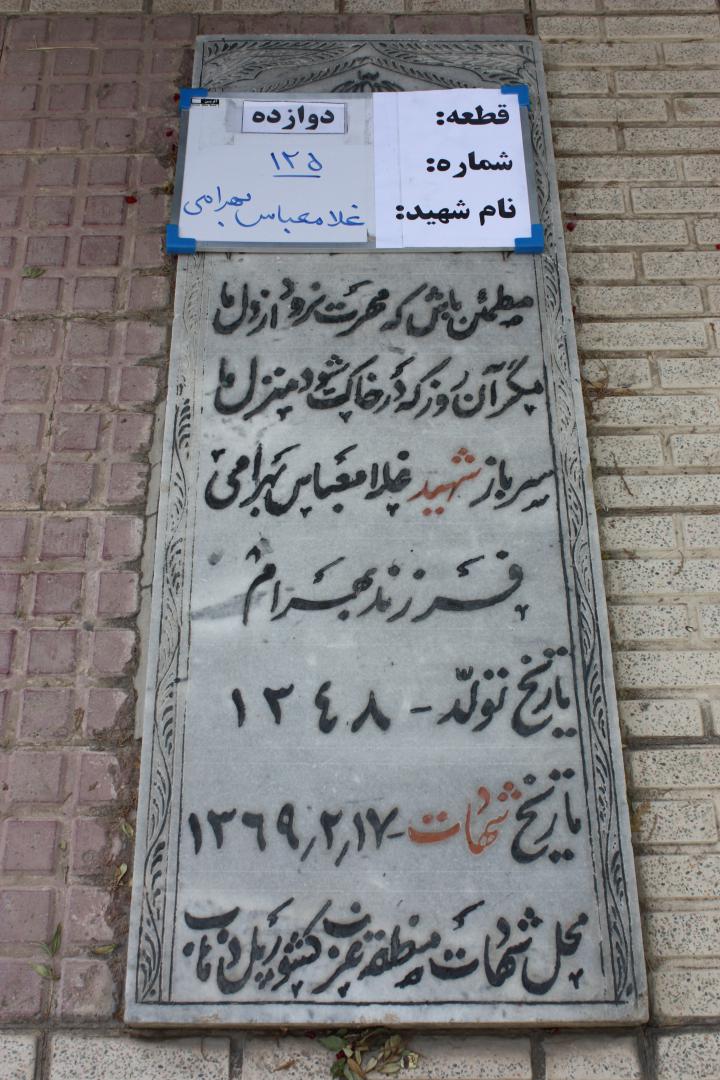 قطعه: دوازده
شماره: ۱۲۵
نام شهید: غلامعباس بهرامی
مطمئن باش که مهرت نرود از دل ما
مگر آن روز که در خاک شود منزل ما
سرباز شهید غلامعباس بهرامی
فرزند بهرام
تاریخ تولد - ۱۳۴۸
تاریخ شهادت - ۱۳۶۹٫۲٫۱۷
محل شهادت منطقه غرب کشور پل